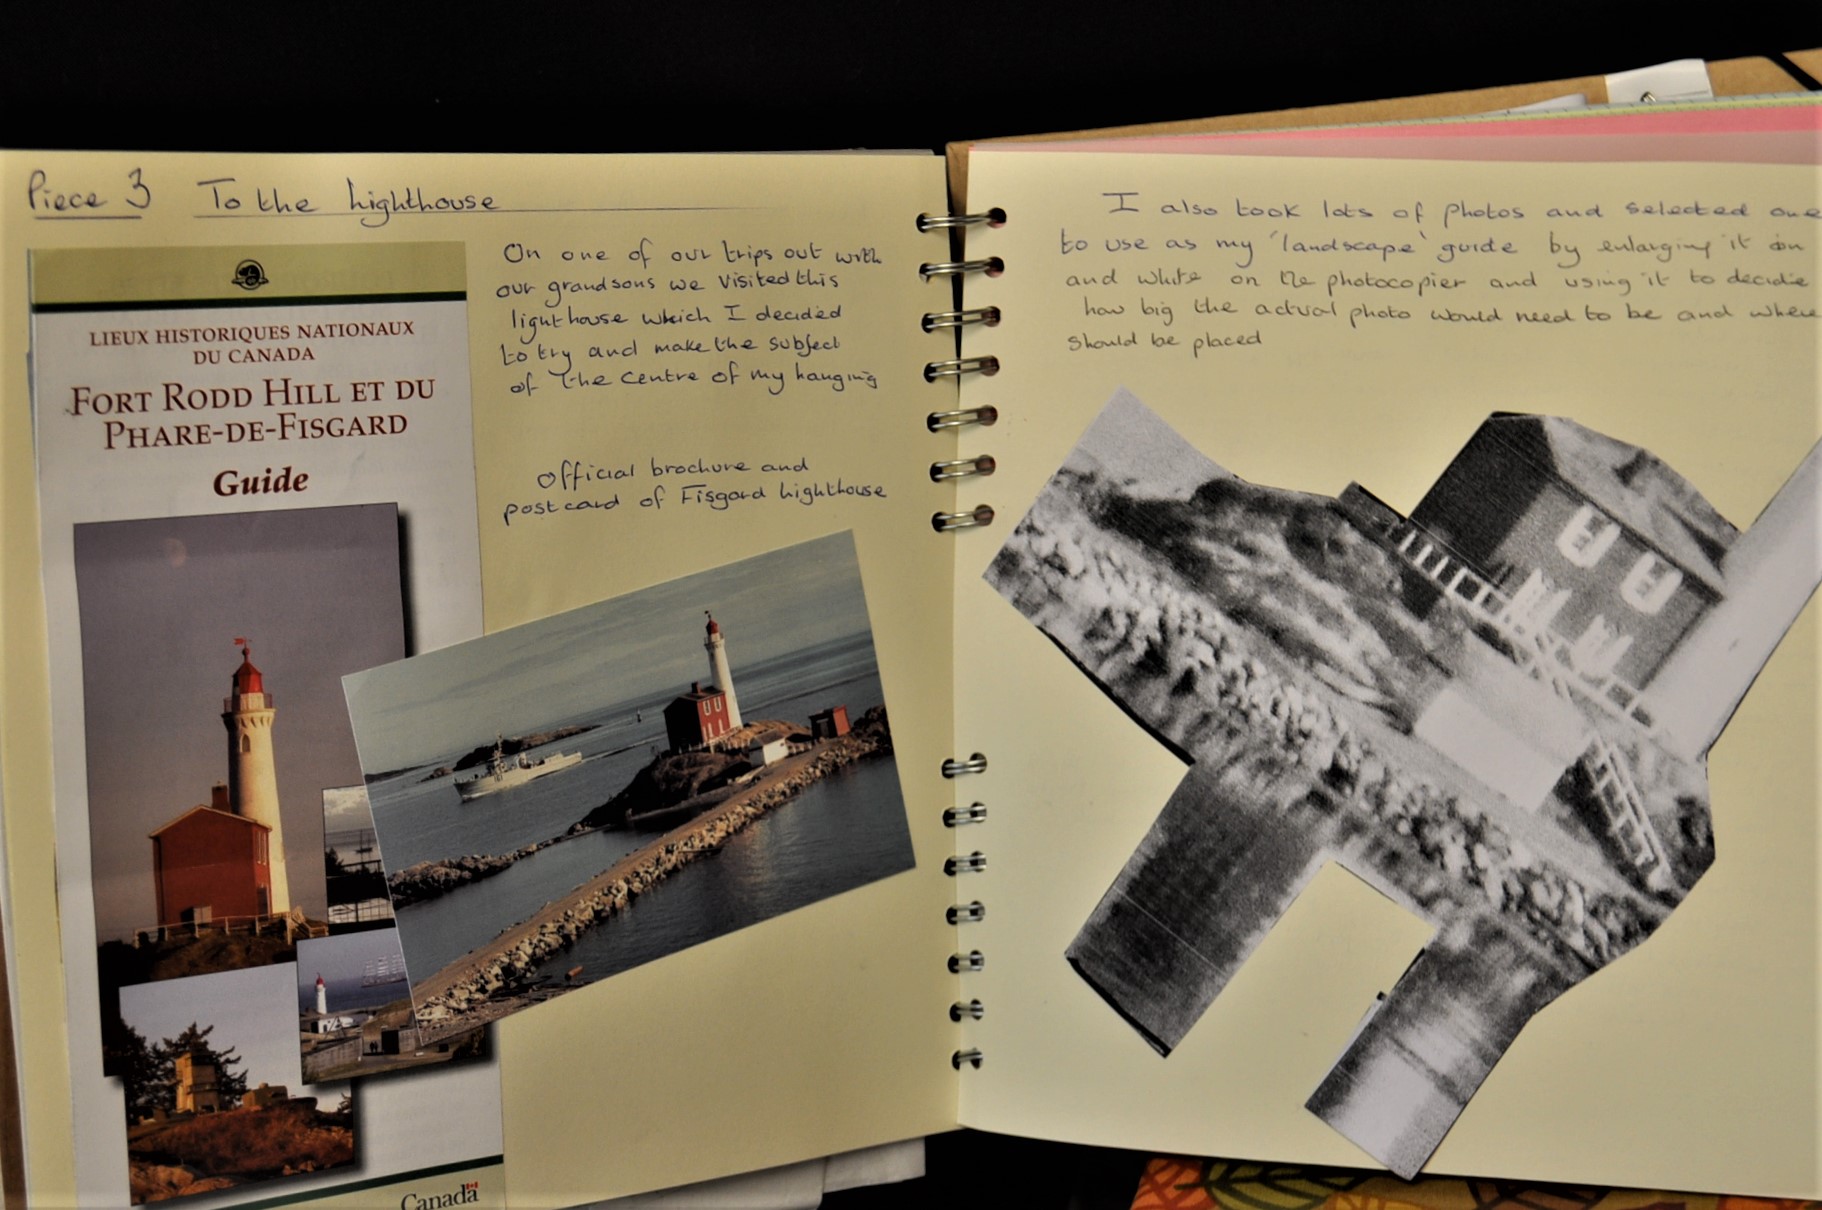 Piece 3 To the Lighthouse
LIEUX HISTORIQUES NATIONAUX
DU CANADA
FORT RODD HILL ET DU
PHARE-DE-FISGARD
Guide
Canada
On one of our trips out with
our grandsons we visited this
lighthouse which I decided
to try and make the subject
of the centre of my hanging
official brochure and
postcard of Fisgard Lighthouse
I also took lots of photos and selected one
to use as my 'landscape' guide by enlarging it on
and white on the photocopier and using it to decide
how big the actual photo would need to be and where
should be placed